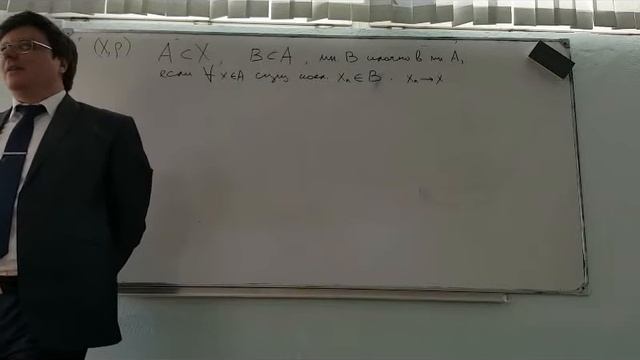 (X, ρ) A ⊂ X, B ⊂ A, мн B плотно в мн A,
если ∀ x ∈ A сущ посл. xₙ ∈ B. xₙ → x